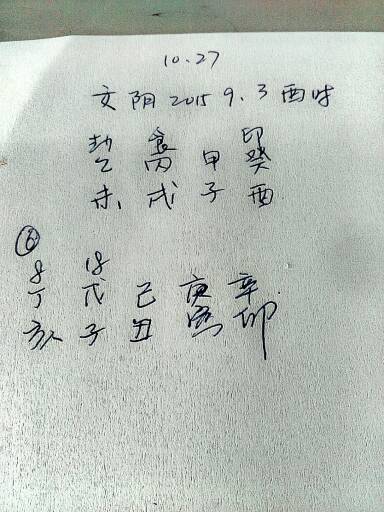 10.27
女阴2015 9.3酉时
劫 食 印
乙 丙 甲 癸
未 戌 子 酉
⑥
8 18
丁 戊 己 庚 辛
亥 子 丑 寅 卯